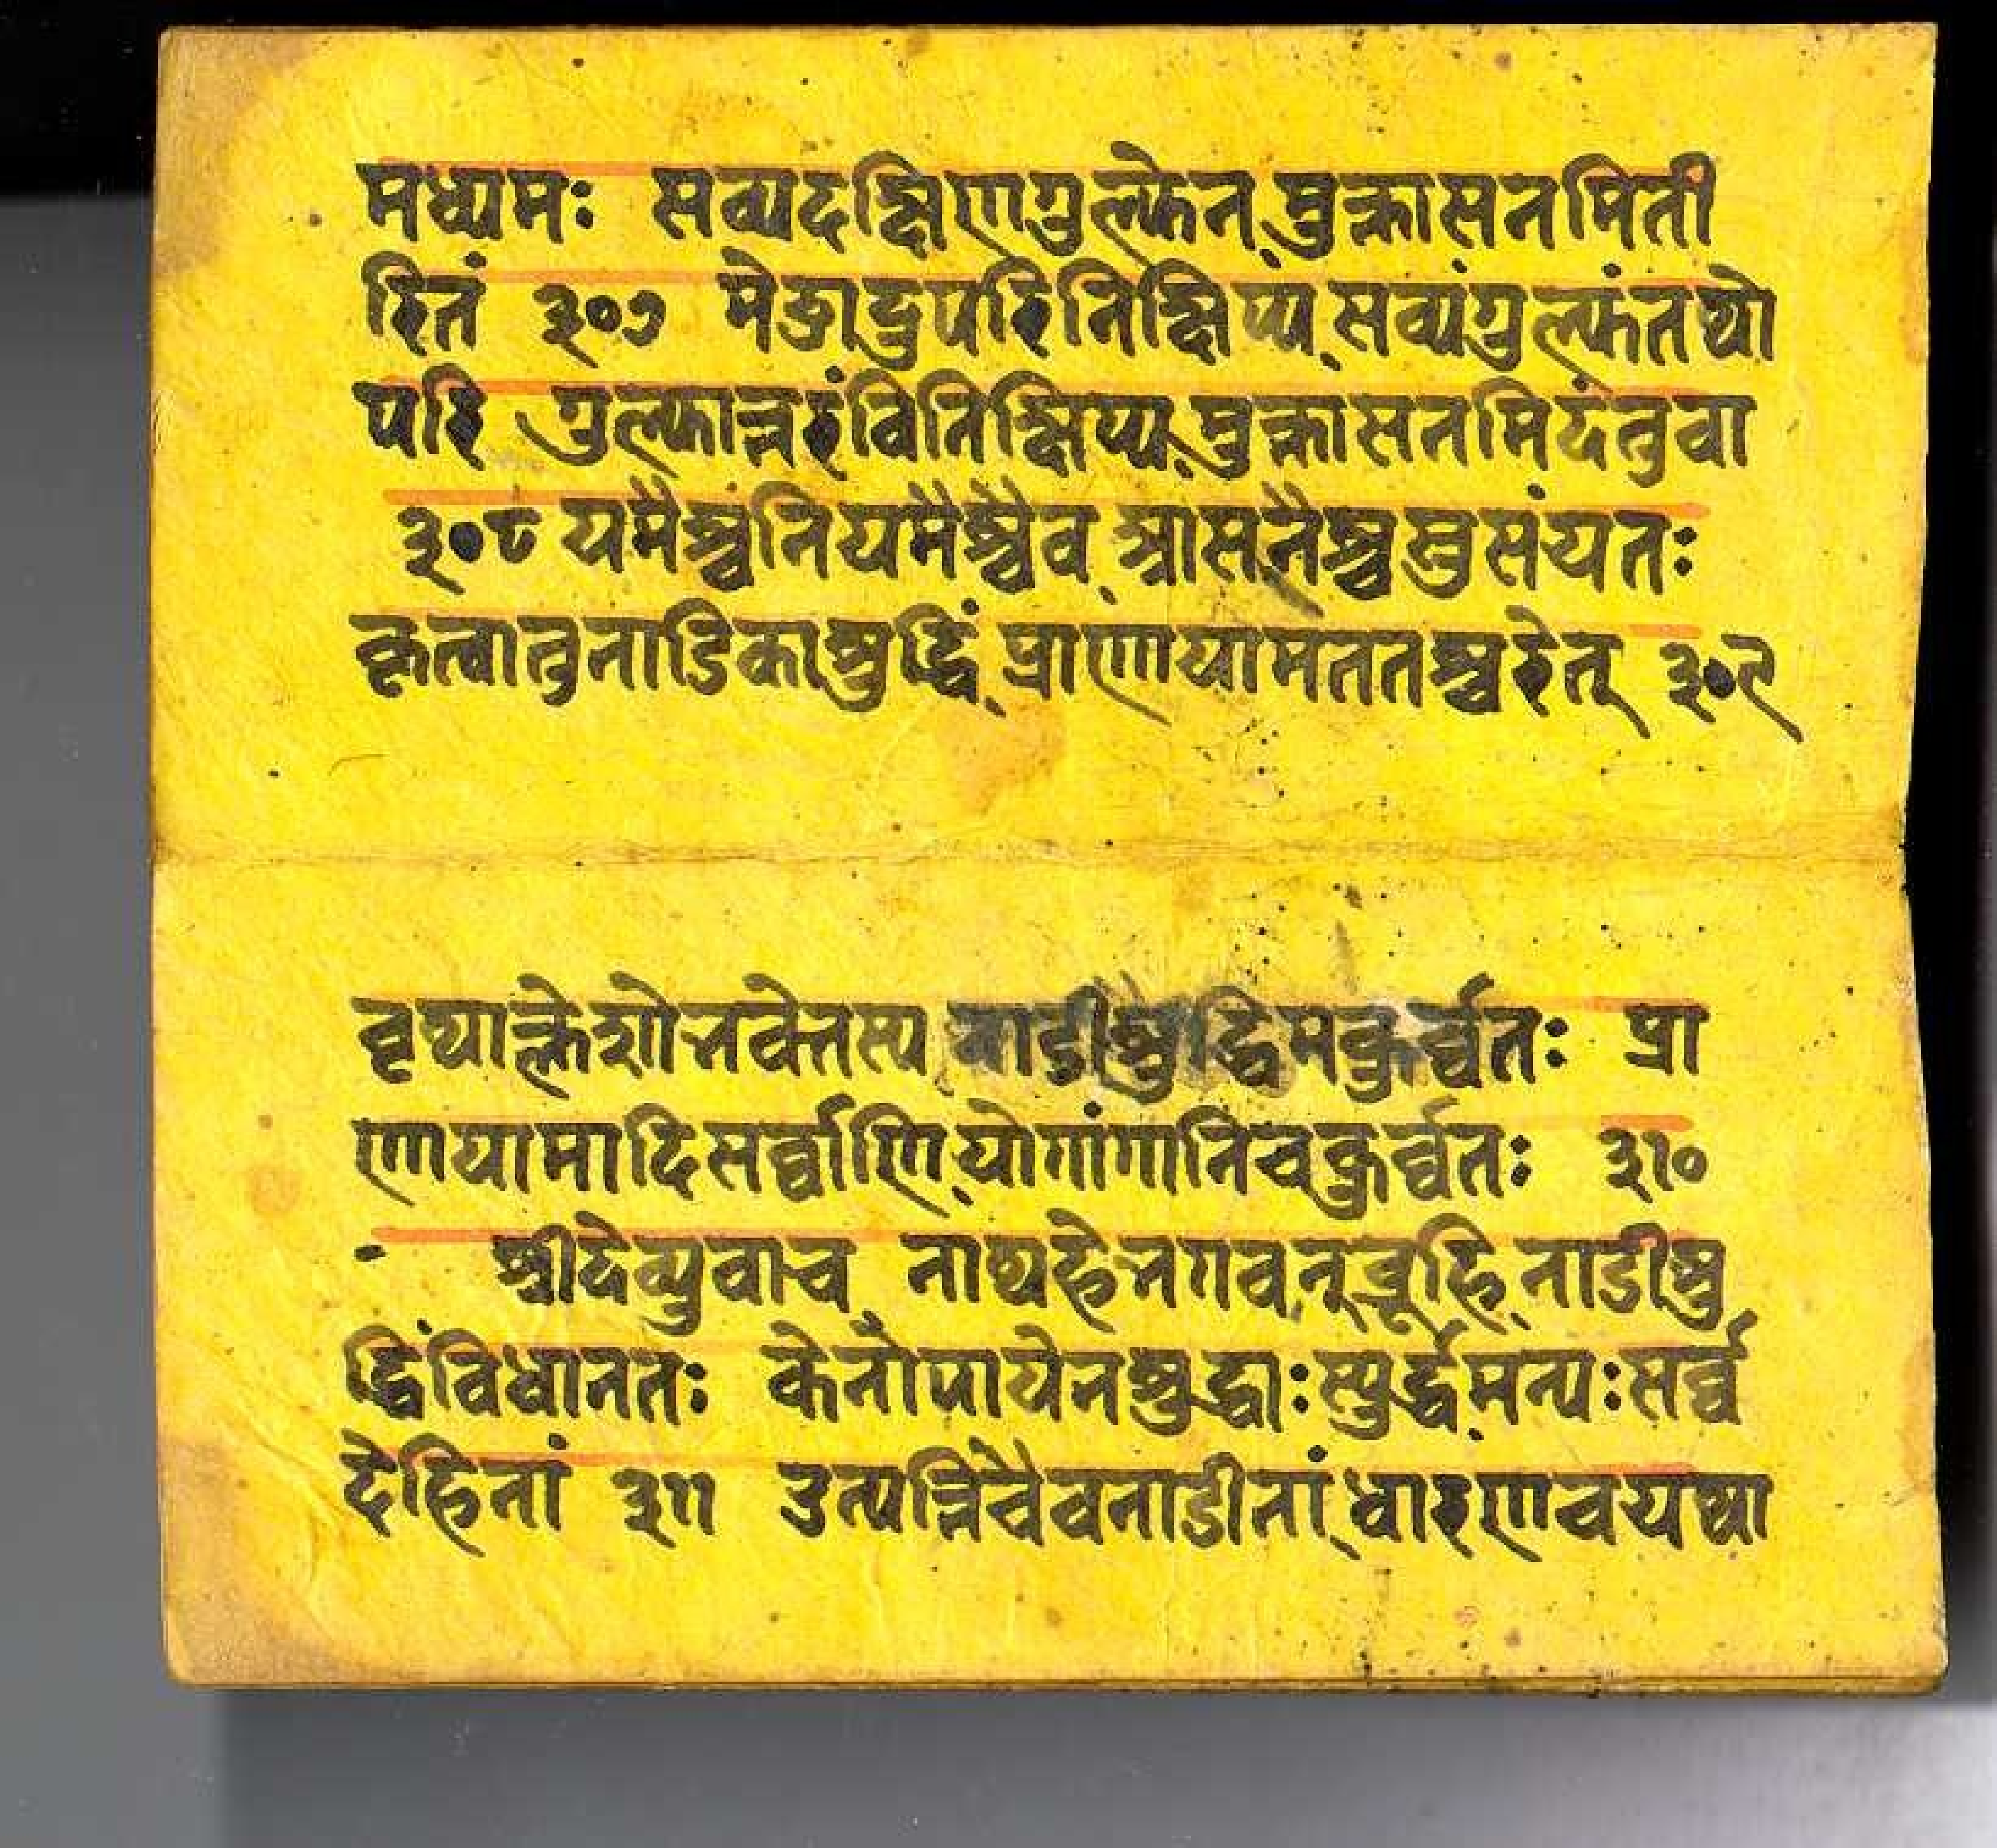 मध्यमः सव्यदक्षिणगुल्फेन मुक्तासनमिती
रितं ३०७ मेढ्रादुपरिनिक्षिप्य सव्यंगुल्फंतथो
परि गुल्फान्तरंविनिक्षिप्य मुक्तासनमिदंतुवा
३०८ यमैश्चनियमैश्चैव आसनैश्चसुसंयतः
कृत्वातुनाडिकाशुद्धिं प्राणायामततश्चरेत् ३०९
वृथाक्लेशोभवेत्तस्य नाडीशुद्धिमकुर्व्वतः प्रा
णायामादिसर्व्वाणि योगांगानिचकुर्व्वतः ३१०
श्रीदेव्युवाच नाथहेभगवन्ब्रूहि नाडीशु
द्धिंविधानतः केनोपायेनशुद्धाःस्युर्द्धमन्यःसर्व्व
देहिनां ३११ उत्पत्तिंचैवनाडीनां धारणंचयथा